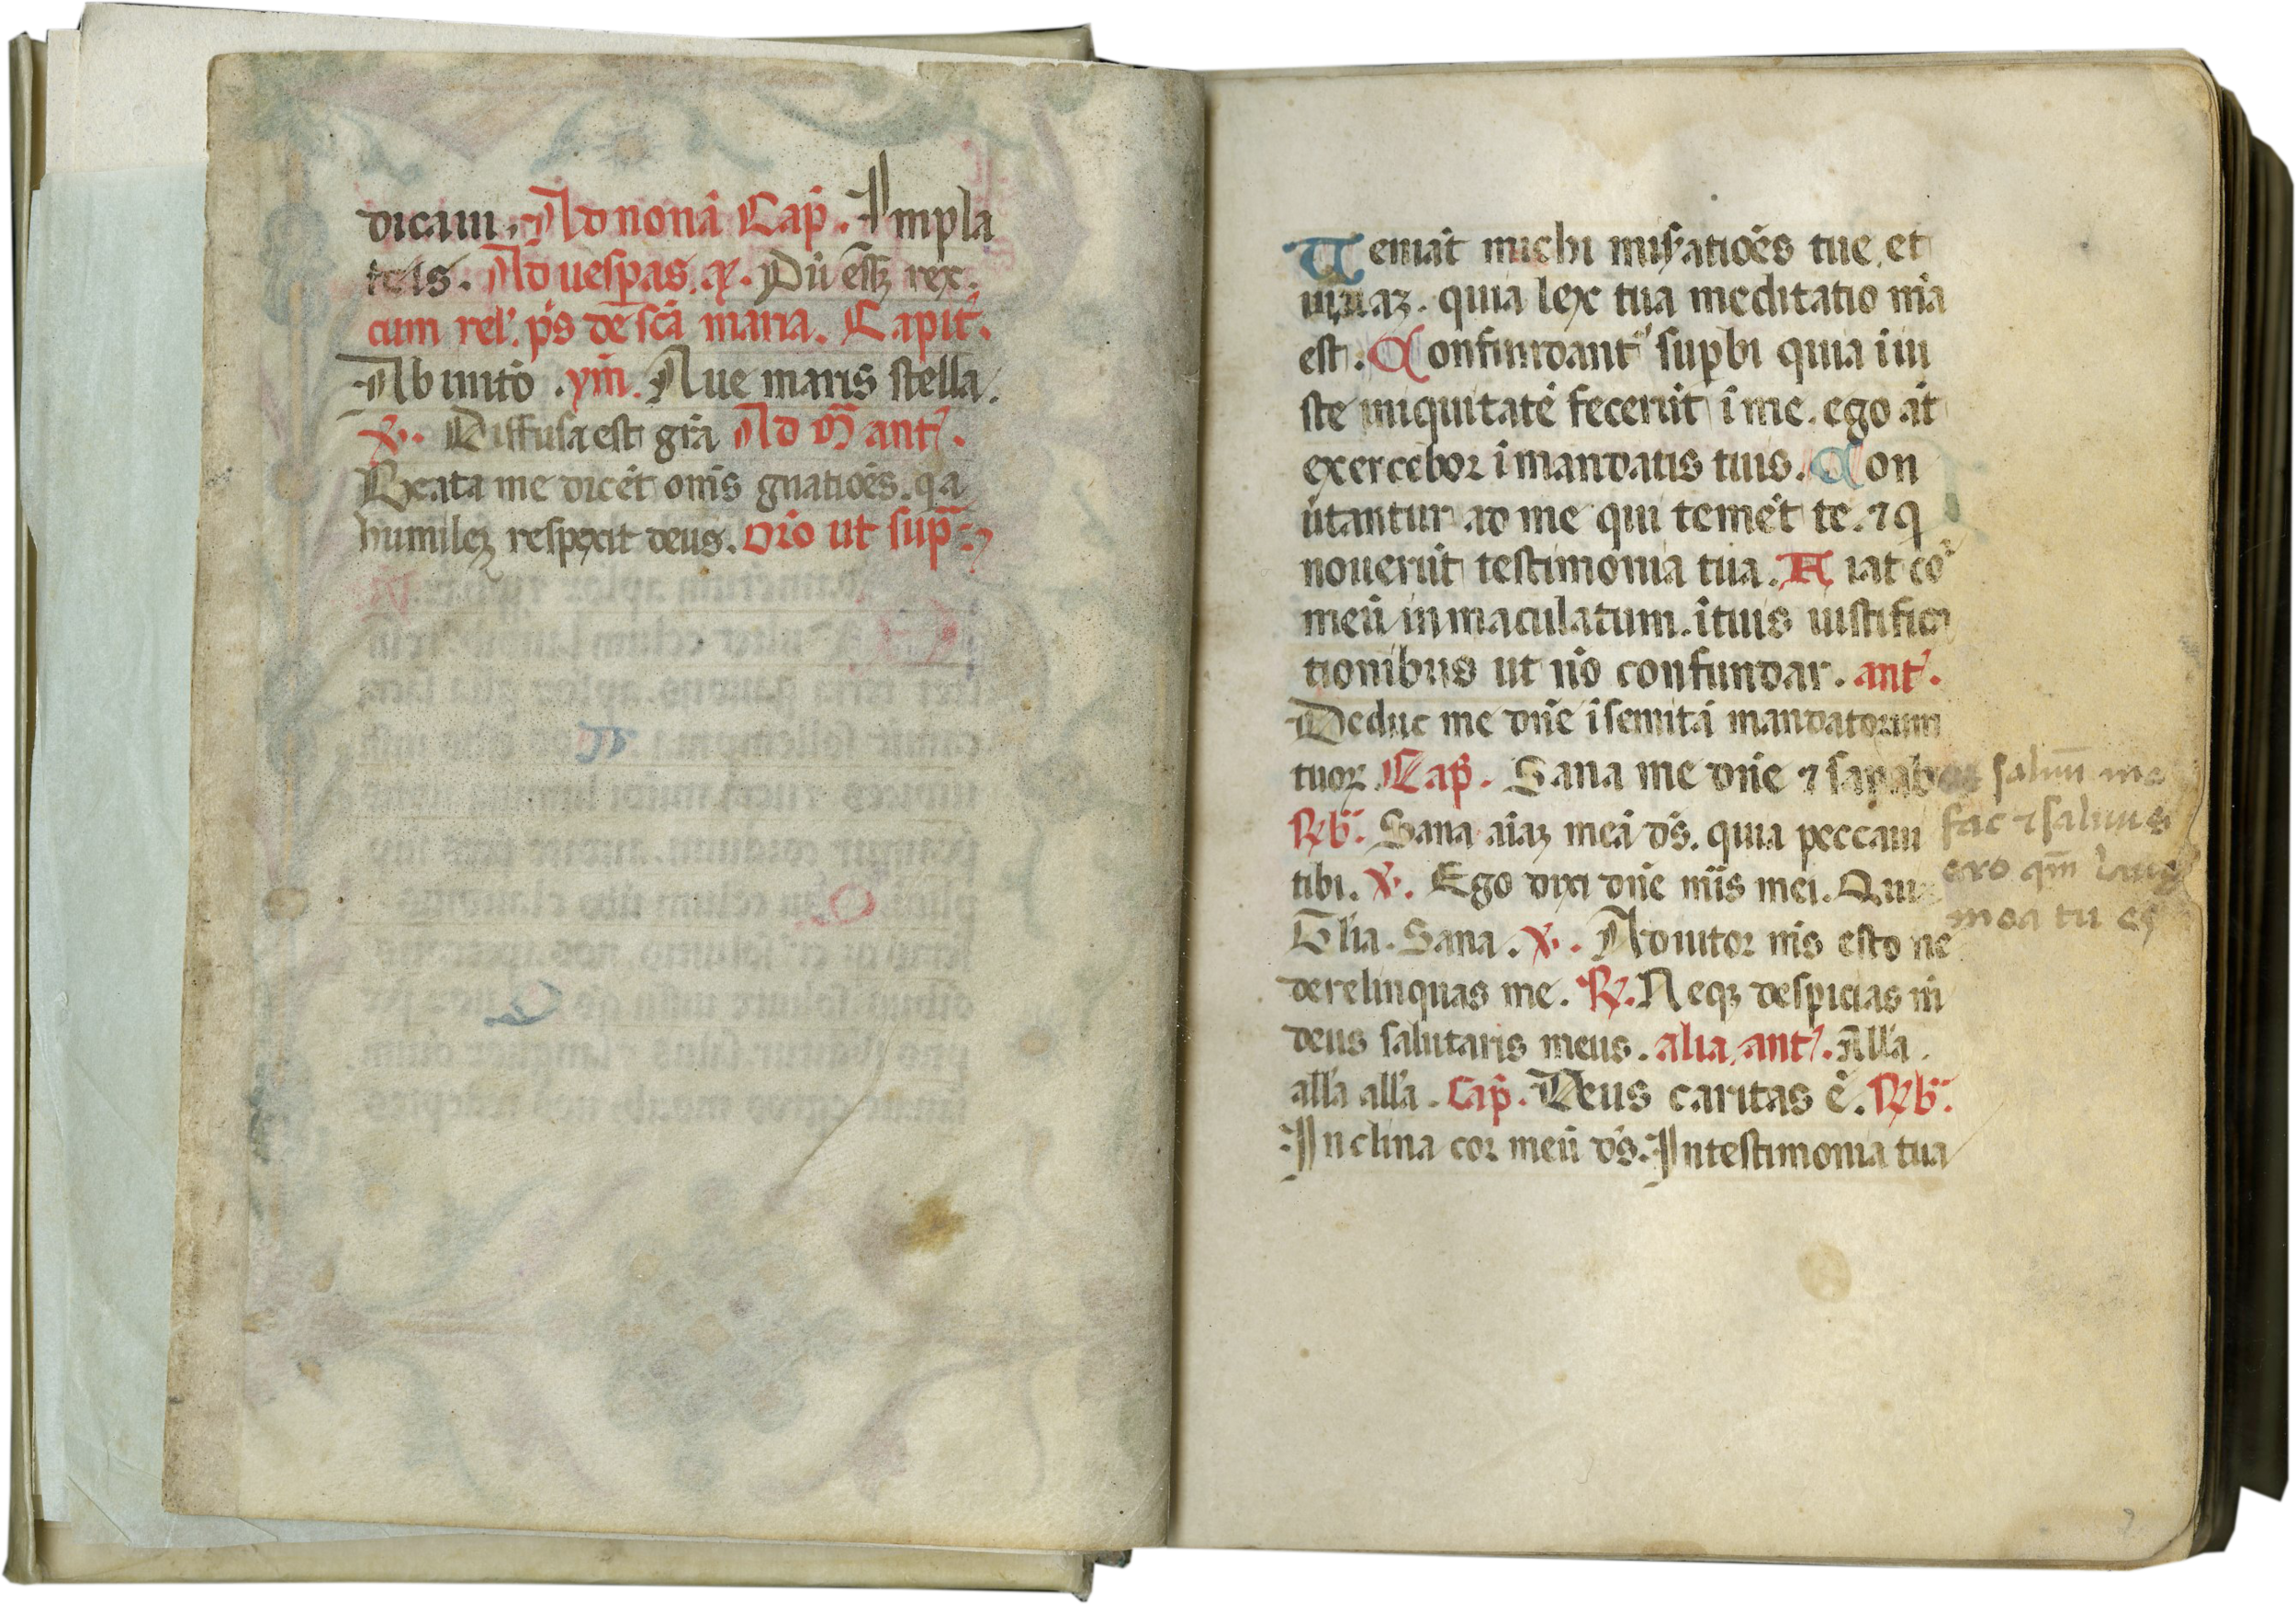 dicam. Ad nonā Cap̄. In pla
teis. Ad uesꝑas. a͞. Dū eēt rex.
cum rel'. p̄s de sc̄a maria. Capit̄.
Ab initō .ym̄. Aue maris stella.
℣. Diffusa est gr̄a Ad m̄ ant̄.
Beata me dicēt om̄s gn̄atiōēs. q̄a
humilēꝫ respexit deus. Orō ut sup̄.
Ueniāt michi mis̄atiōēs tue et
uiuaꝫ. quia lex tua meditatio m̄a
est. Confundant̄ sup̄bi quia iiu
ste iniquitatē fecerūt ī me. ego āt
exercebor ī mandatis tuis. Con
ūtantur ad me qui timēt te. ⁊ q̄
nouerūt testimonia tua. Fiat co͛
meū inmaculatum. ī tuis iustifica
tionibus ut nō confundar. ant̄.
Deduc me dn̄e ī semitā mandatorum
tuoꝝ. Cap̄. Sana me dn̄e ⁊ sanabor
saluū me
℟b̄. Sana aīaꝫ meā ds̄. quia peccaui
fac ⁊ saluus
tibi. ℣. Ego dixi dn̄e mis̄ mei. Quia
ero qm̄ laus
mea tu es
Gl'ia. Sana. ℣. Adiutor m̄s esto ne
derelinquas me. ℟. Neqꝫ despicias m̄
deus salutaris meus. alia ant̄. All'a.
all'a all'a. Cap̄. Deus caritas ē. ℟b̄.
Inclina cor meū ds̄. In testimonia tua